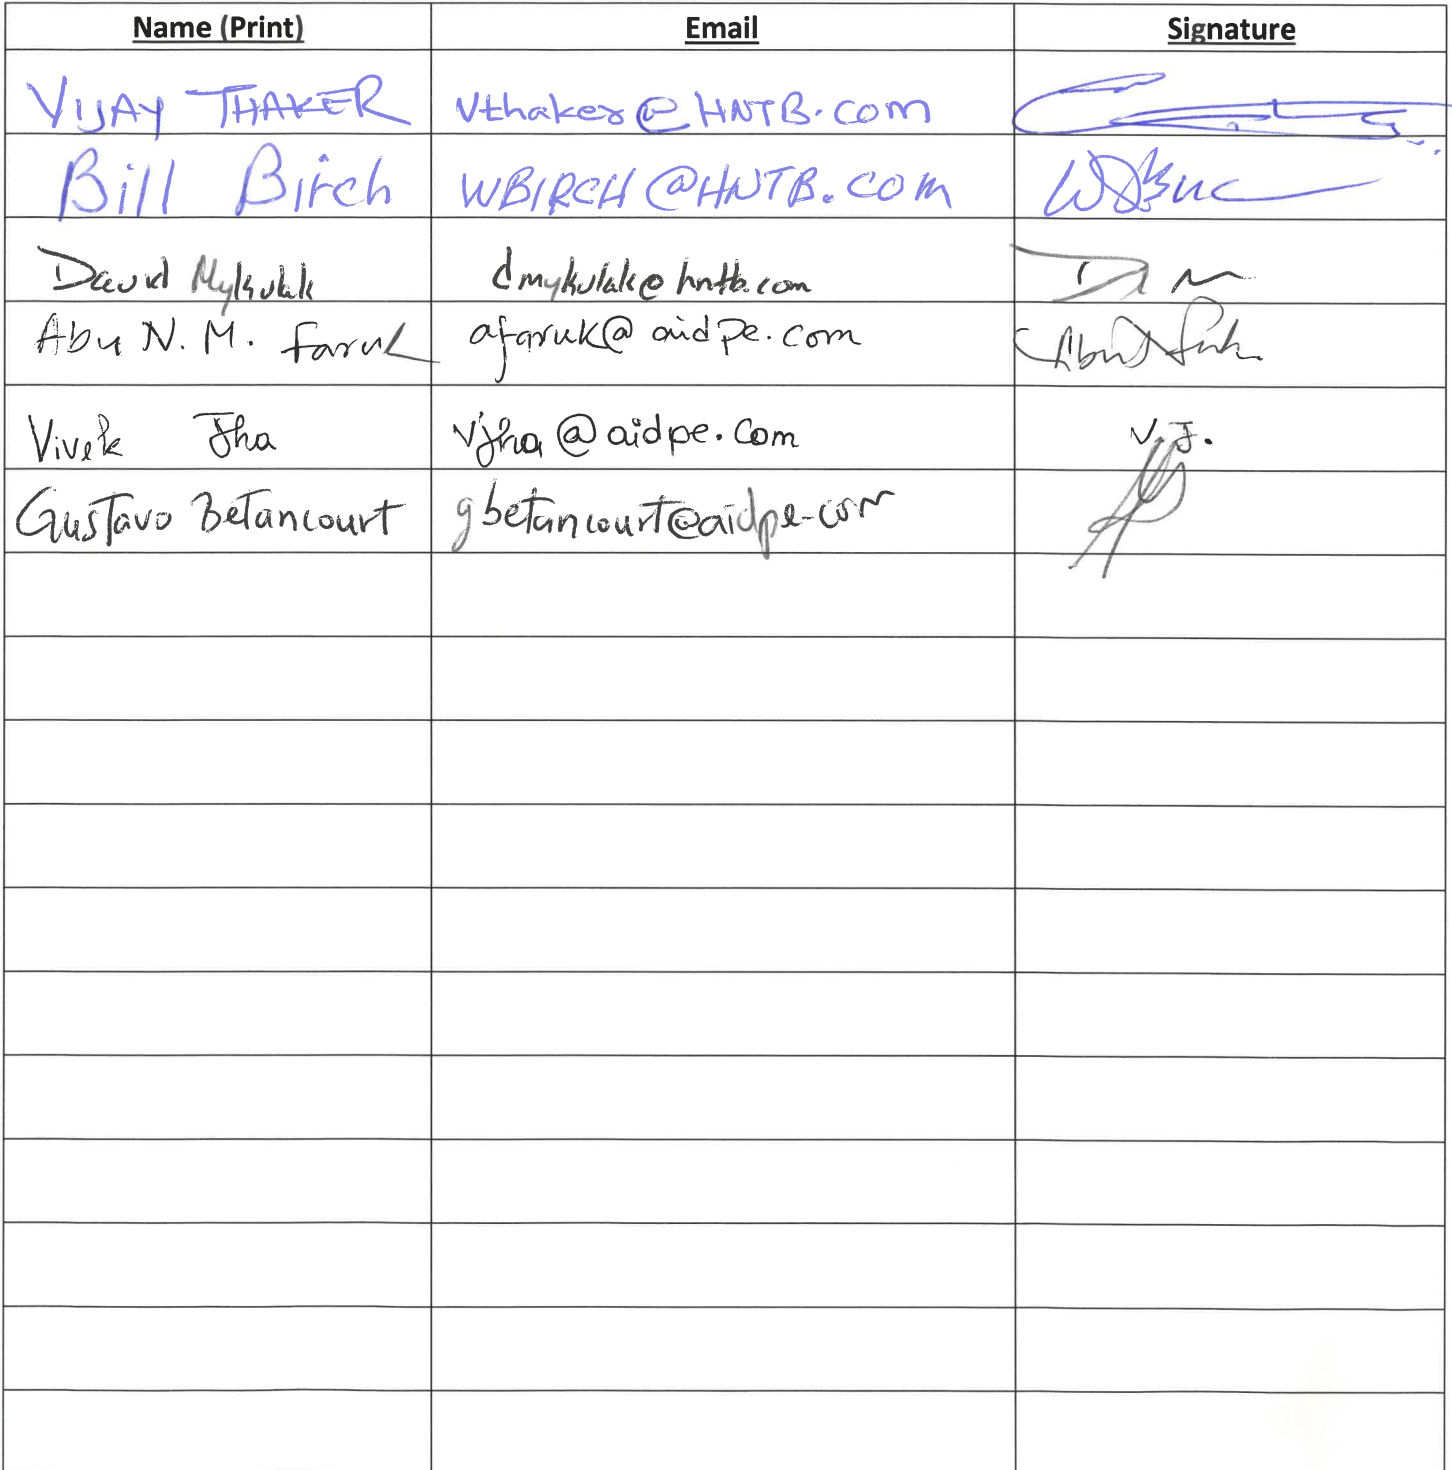 Name (Print) Email Signature
VIJAY THAKER vthaker@HNTB.com
Bill Birch WBIRCH@HNTB.COM
David Mykulak dmykulak@hntb.com
Abu N. M. Faruk afaruk@aidpe.com
Vivek Jha vjha@aidpe.com V.J.
Gustavo Betancourt gbetancourt@aidpe.com